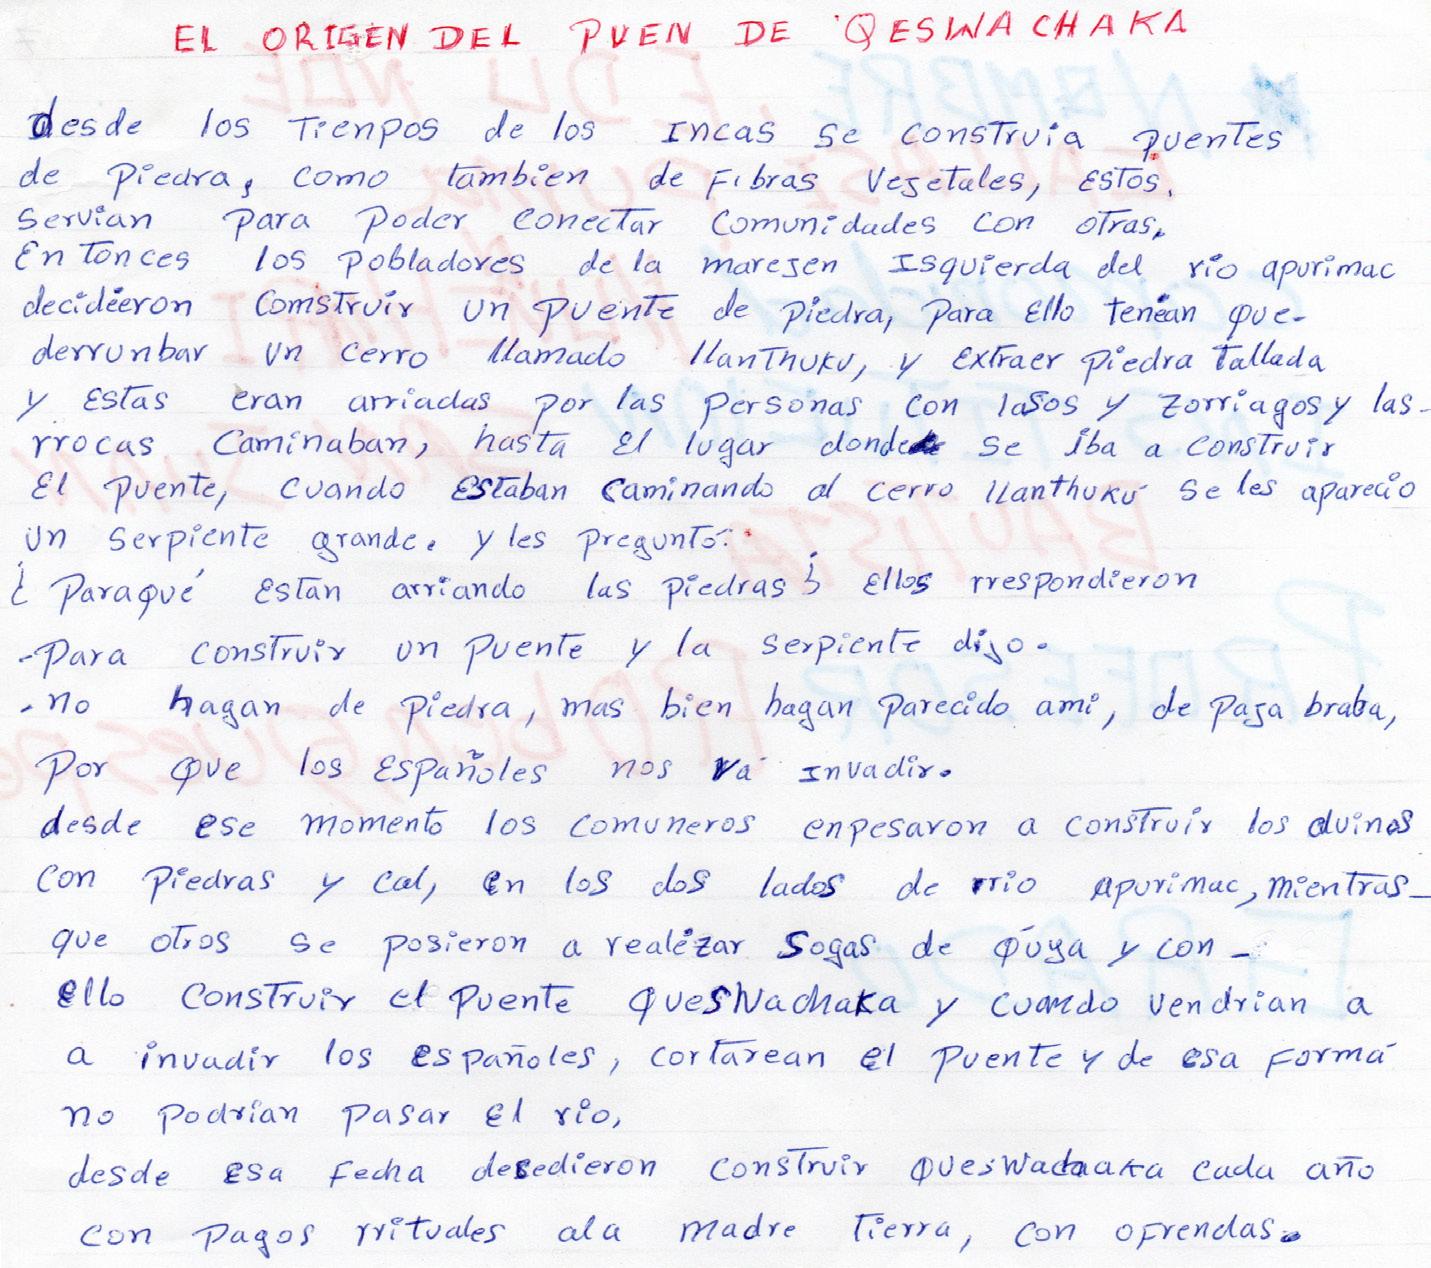 EL ORIGEN DEL PUEN DE QESWACHAKA
desde los Tienpos de los INCAS se construia puentes
de piedra, como tambien de Fibras Vegetales, Estos,
servian para poder conectar comunidades con otras,
Entonces los pobladores de la maregen Isquierda del rio apurimac
decidieron comstruir un puente de piedra, para Ello tenian que-
derrunbar un cerro llamado llanthuku, y Extraer piedra tallada
y Estas eran arriadas por las personas con lasos y zorriagos y las-
rrocas caminaban, hasta El lugar donde se iba a construir
El puente, cuando Estaban caminando al cerro llanthuku se les aparecio
un serpiente grande. y les pregunto:
¿ Paraqué Estan arriando las piedras? Ellos rrespondieron
-Para construir un puente y la serpiente dijo.
-no hagan de piedra, mas bien hagan parecido ami, de paja braba,
por que los Españoles nos va invadir.
desde ese momento los comuneros enpesaron a construir los
con piedras y cal, en los dos lados de rrio apurimac, mientras-
que otros se posieron a realizar sogas de q'uya y con-
Ello construir el puente Queswachaka y cuando vendrian a
a invadir los españoles, cortarean el puente y de esa forma
no podrian pasar el rio,
desde esa fecha desedieron construir queswachaka cada año
con pagos rrituales ala madre tierra, con ofrendas.